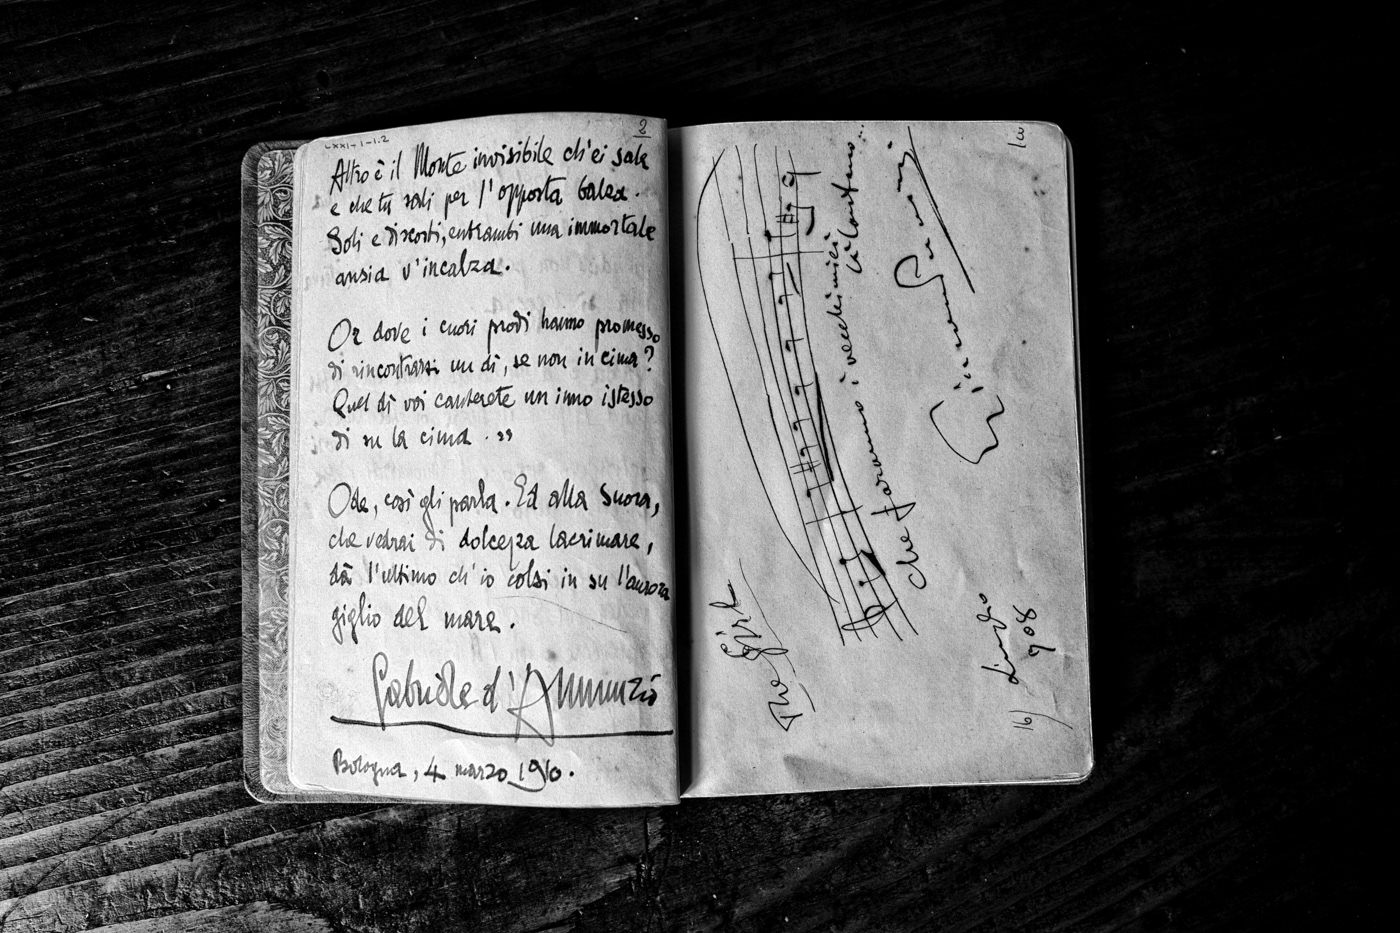 LXXI-1-1.2
2
Altro è il Monte invisibile ch'ei sale
e che tu sali per l'opposta balza.
Soli e discosti, entrambi una immortale
ansia v'incalza.
Or dove i cuori prodi hanno promesso
di rincontrarsi un dì, se non in cima?
Quel dì voi canterete un inno istesso
di su la cima. »
Ode, così gli parla. Ed alla Suora,
che vedrai di dolcezza lacrimare,
dà l'ultimo ch'io colsi in su l'aurora
giglio del mare.
Gabriele d'Annunzio
Bologna, 4 marzo 1910.
3
The Girl
che faranno i vecchi miei
là lontano...
Giacomo Puccini
Luglio
908
16)